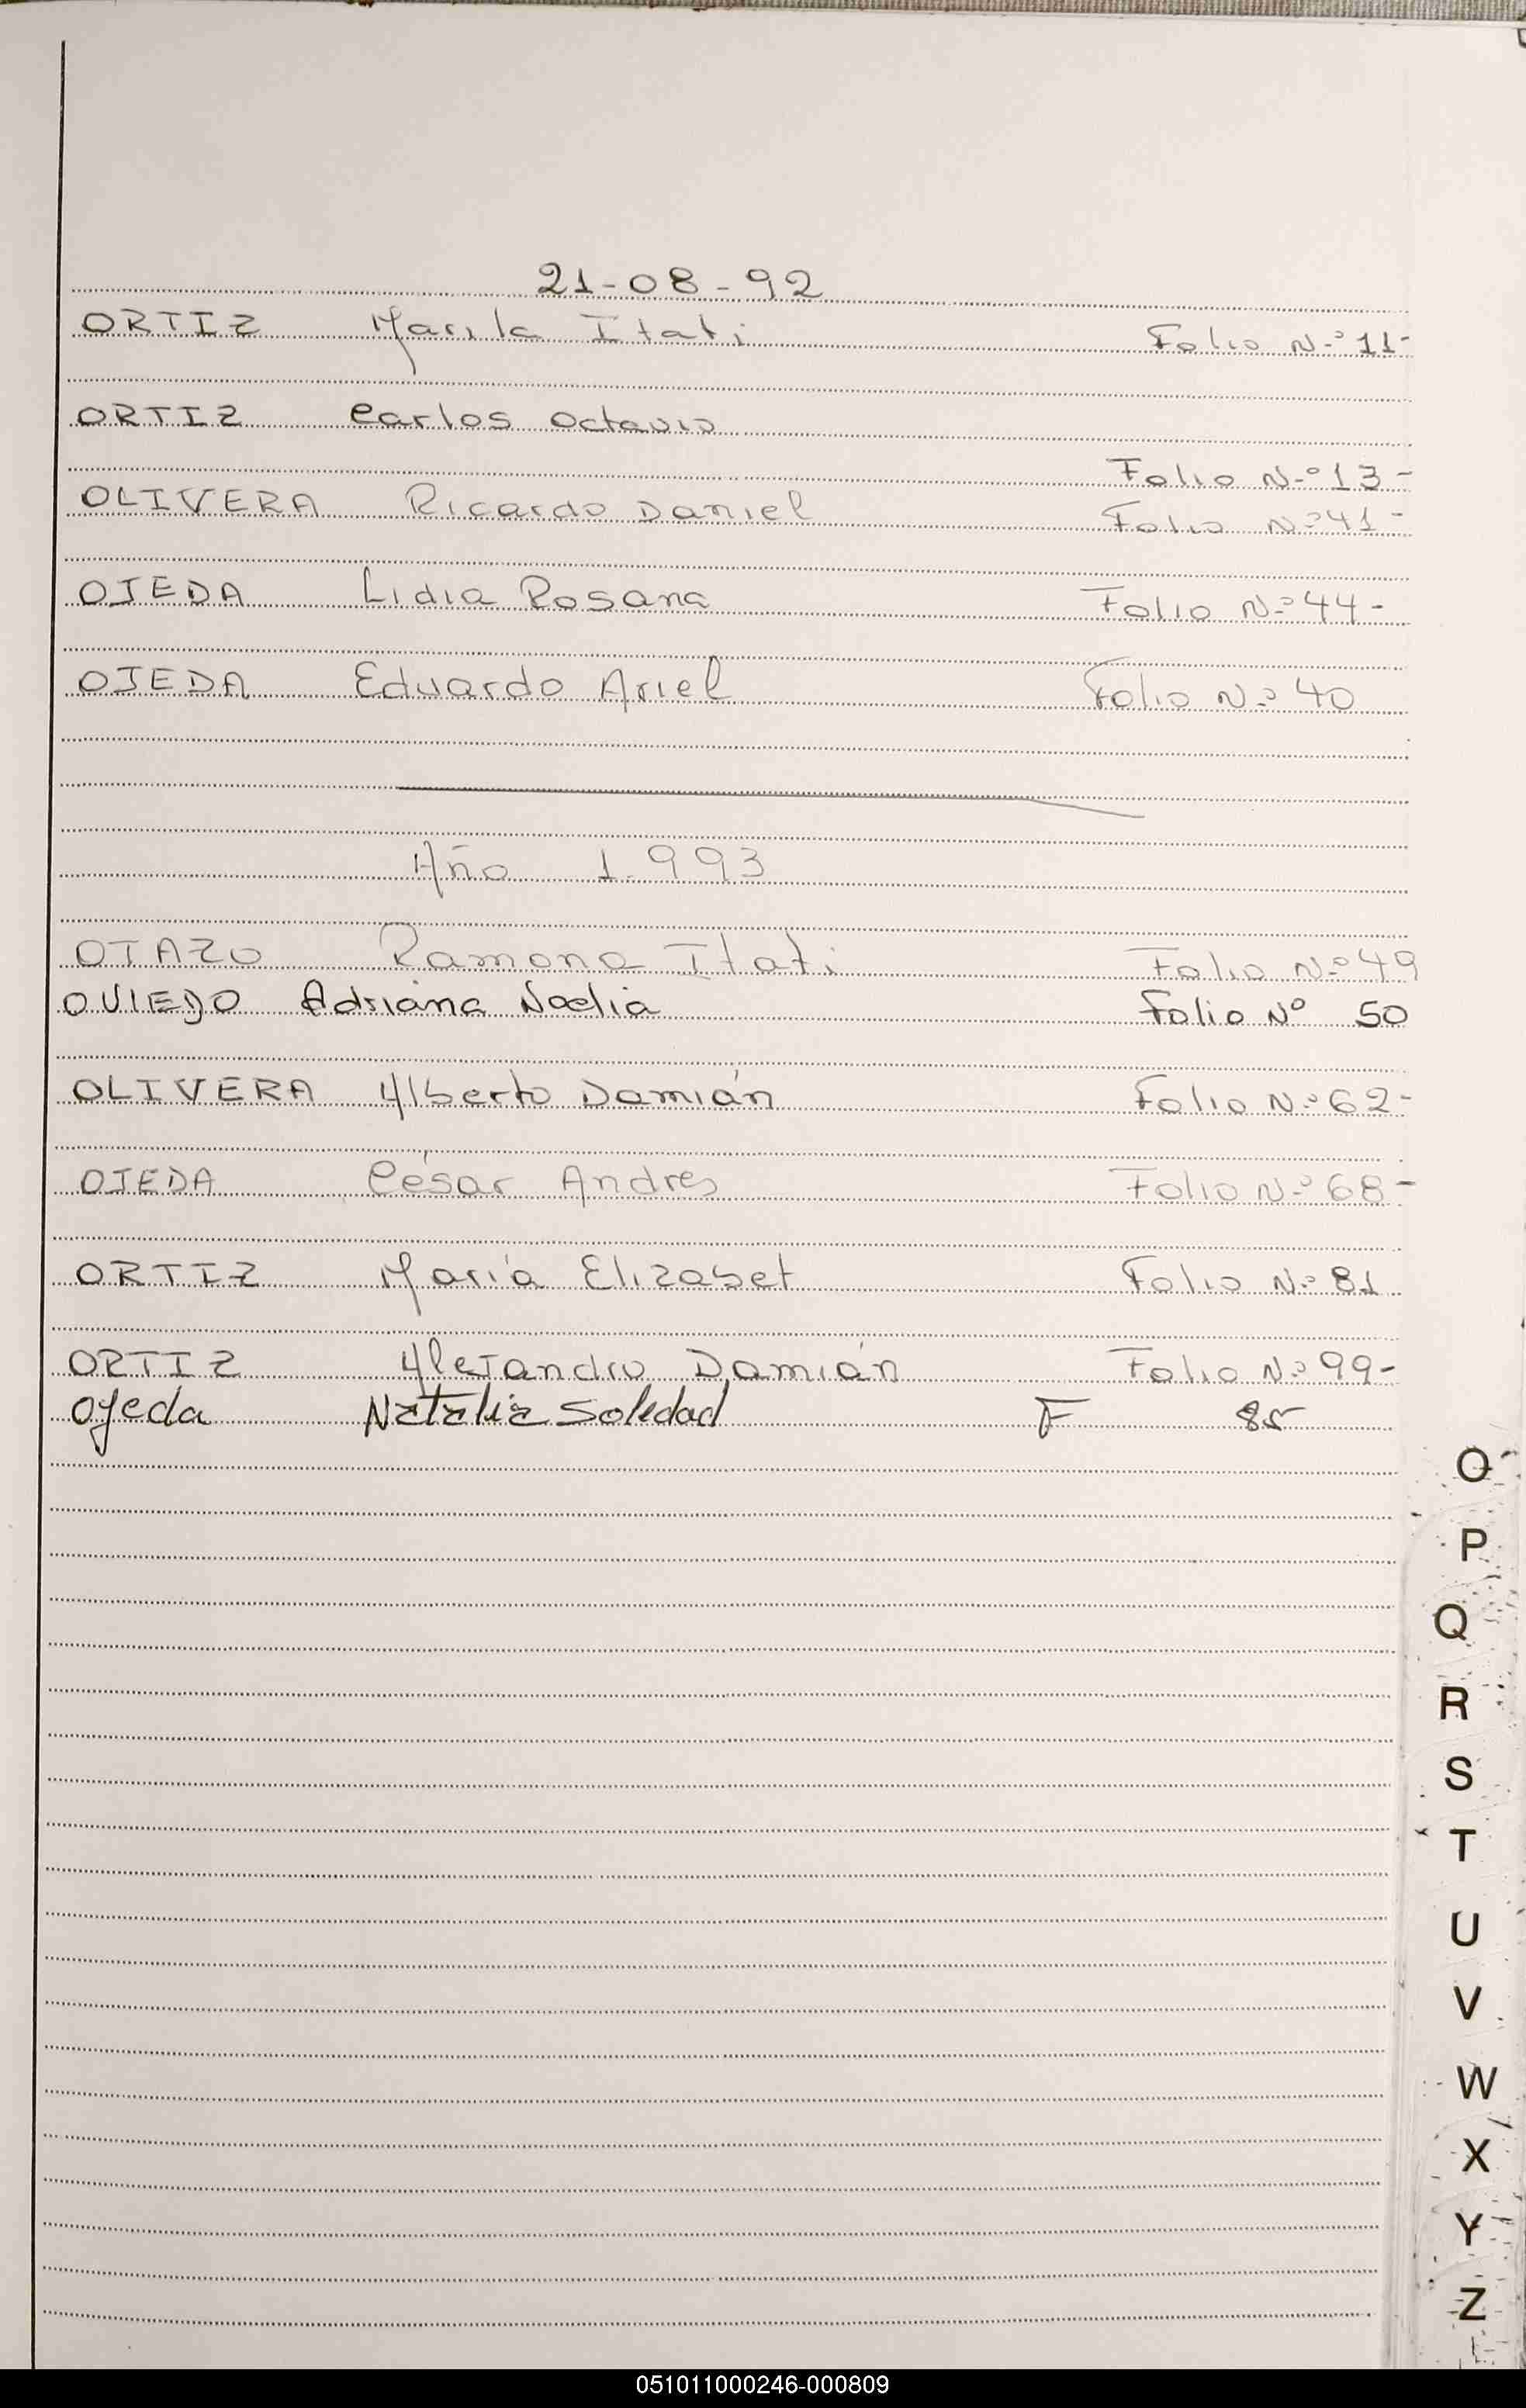 21-08-92
ORTIZ Marila Itati Folio N.º 11-
ORTIZ Carlos Octavio
Folio N.º 13-
OLIVERA Ricardo Daniel Folio N.º 41-
OJEDA Lidia Rosana Folio N.º 44-
OJEDA Eduardo Ariel Folio N.º 40
Año 1.993
OTAZO Ramona Itati Folio N.º 49
OVIEDO Adriana Noelia Folio Nº 50
OLIVERA Alberto Damián Folio N.º 62-
OJEDA César Andres Folio N.º 68-
ORTIZ María Elizabet Folio N.º 81
ORTIZ Alejandro Damián Folio N.º 99-
Ojeda Natalia Soledad F 85
O
P
Q
R
S
T
U
V
W
X
Y
Z
051011000246-000809